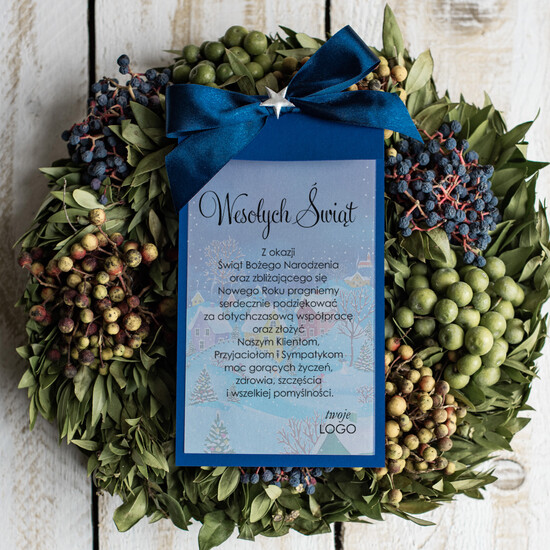 Wesołych Świąt
Z okazji
Świąt Bożego Narodzenia
oraz zbliżającego się
Nowego Roku pragniemy
serdecznie podziękować
za dotychczasową współpracę
oraz złożyć
Naszym Klientom,
Przyjaciołom i Sympatykom
moc gorących życzeń,
zdrowia, szczęścia
i wszelkiej pomyślności.
twoje
LOGO